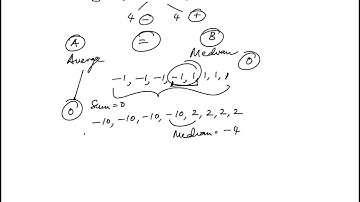 4 - 4 +
A = B
Average Median 0
-1, -1, -1, -1, 1, 1, 1, 1
0 Sum=0
-10, -10, -10, -10, 2, 2, 2, 2
Median = -4